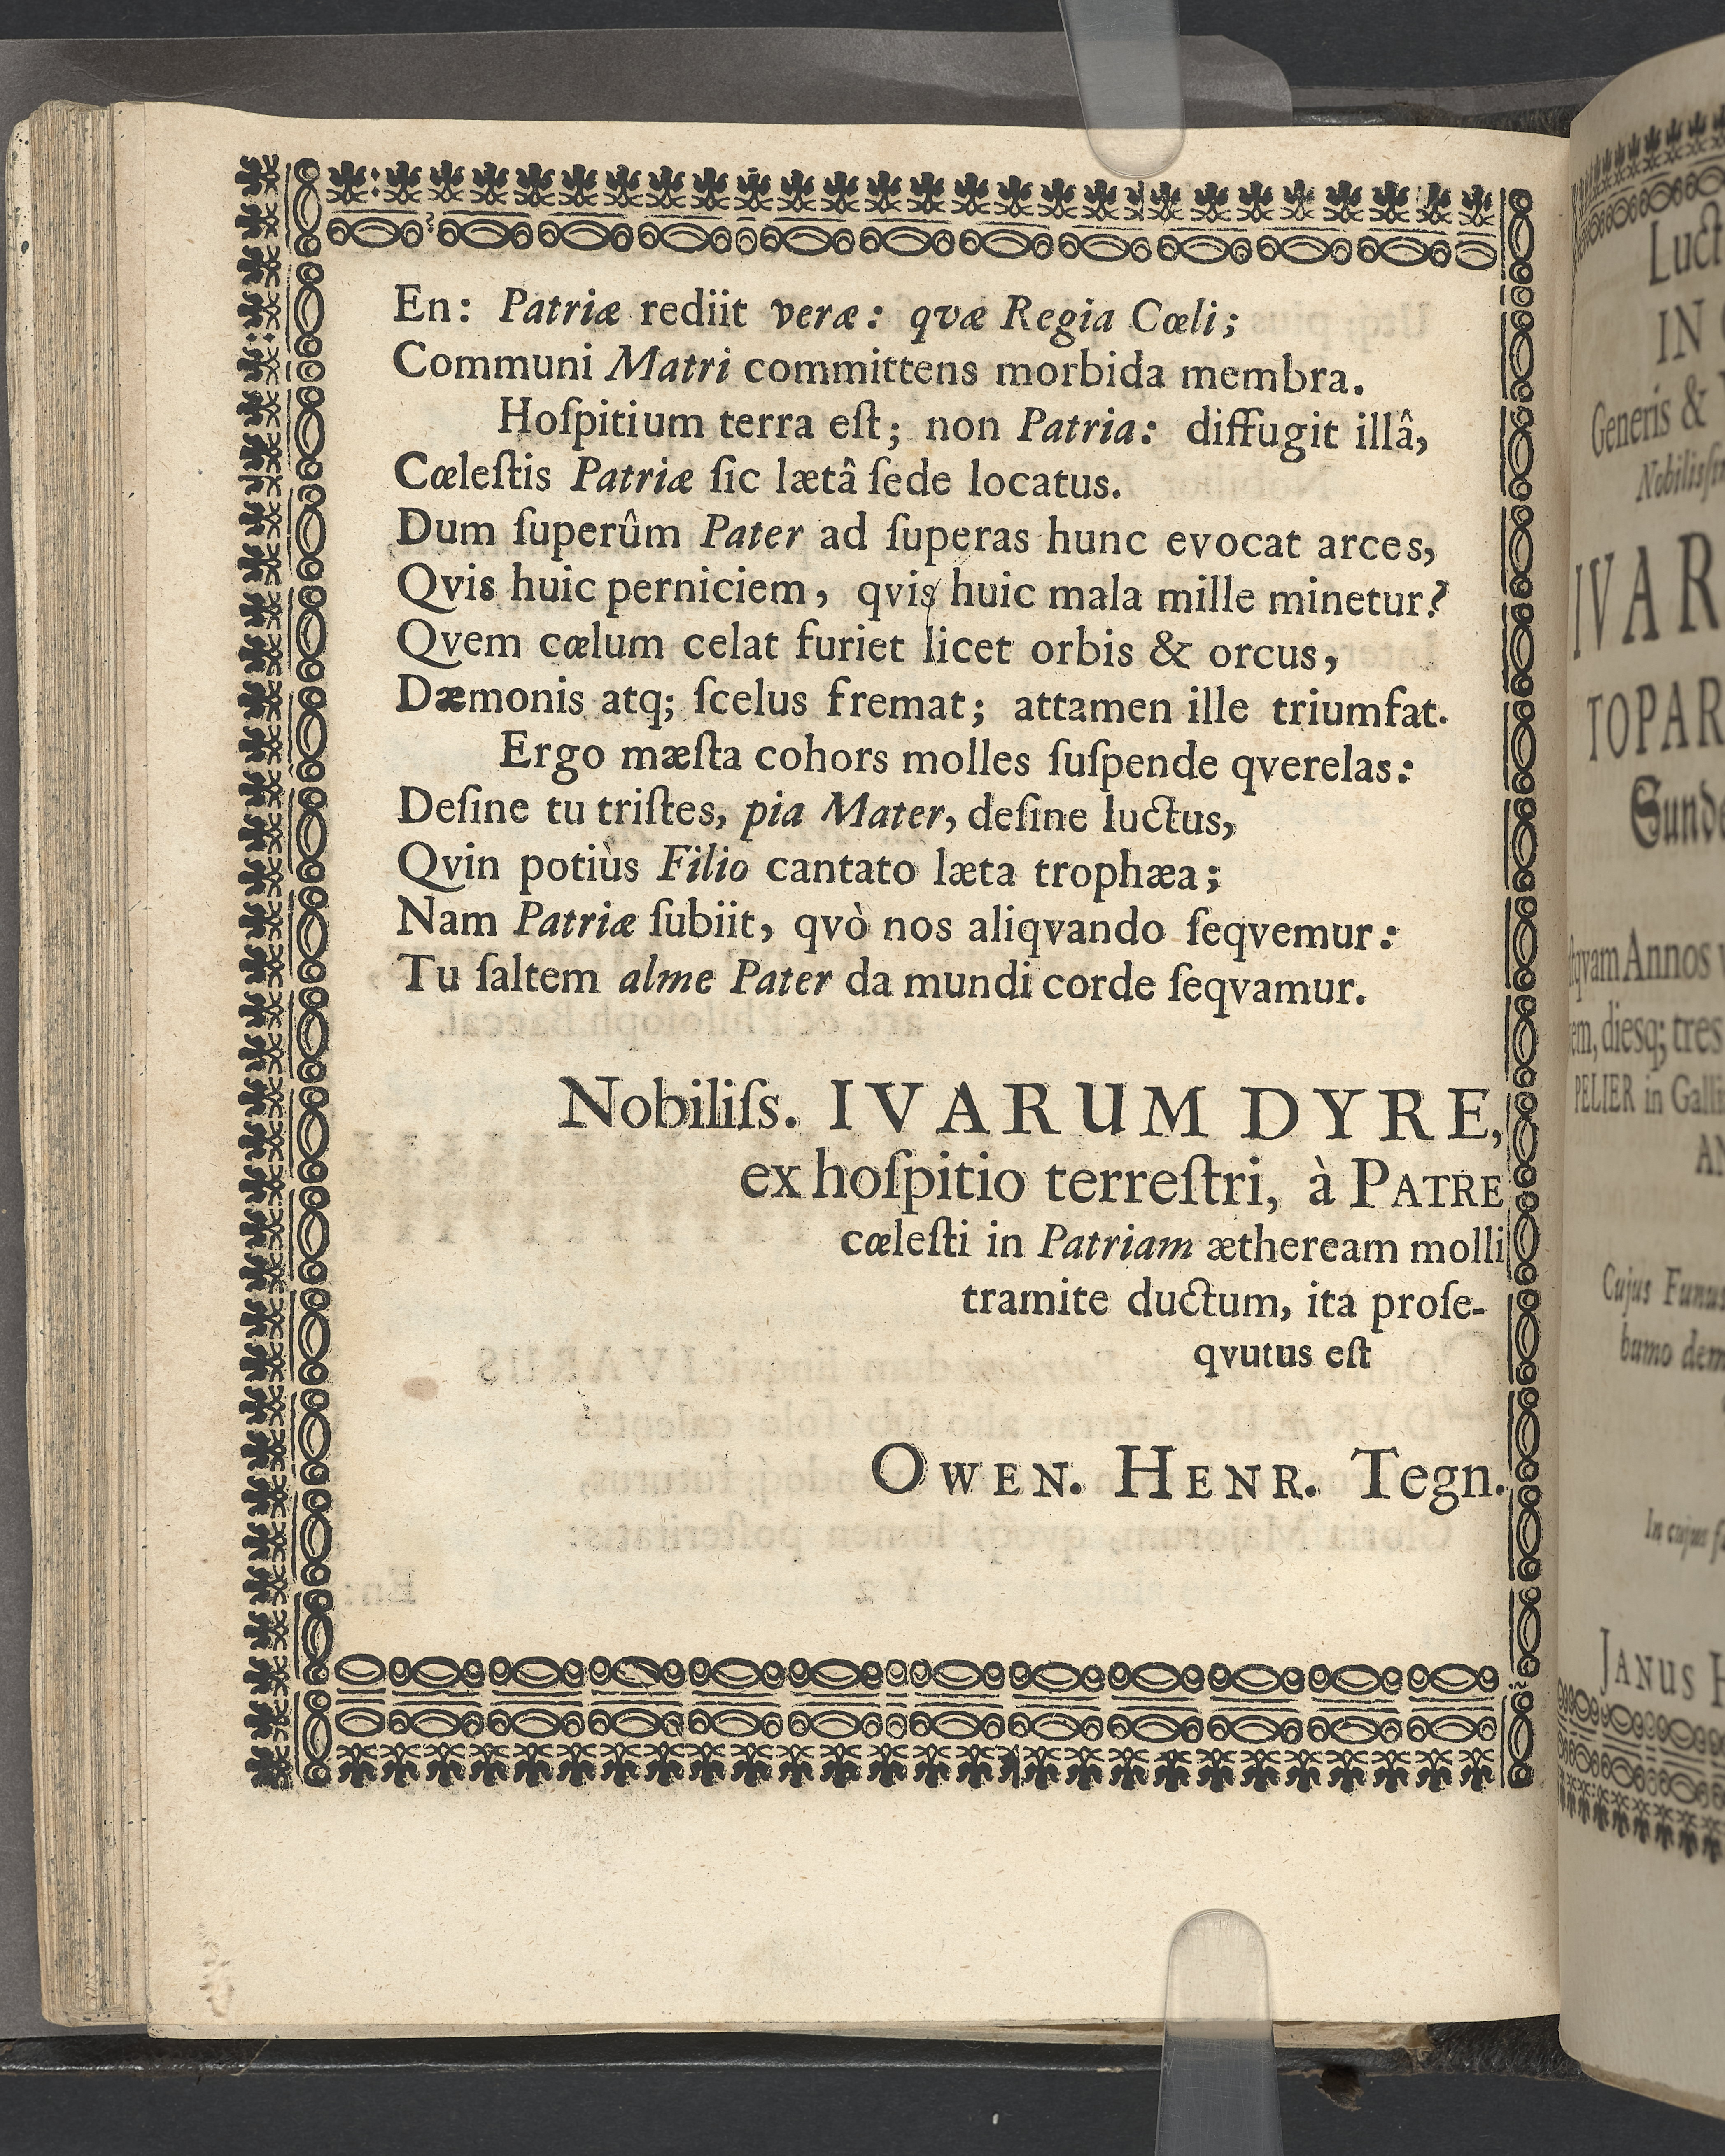 En: Patriæ rediit veræ: qvæ Regia Cœli;
Communi Matri committens morbida membra.
Hoſpitium terra eſt; non Patria: diffugit illâ,
Cœleſtis Patriæ ſic lætâ ſede locatus.
Dum ſuperûm Pater ad ſuperas hunc evocat arces,
Qvis huic perniciem, qvis huic mala mille minetur?
Qvem cœlum celat furiet licet orbis & orcus,
Dæmonis atq; ſcelus fremat; attamen ille triumfat.
Ergo mæſta cohors molles ſuſpende qverelas:
Deſine tu triſtes, pia Mater, deſine luctus,
Qvin potiùs Filio cantato læta trophæa;
Nam Patriæ ſubiit, qvò nos aliqvando ſeqvemur:
Tu ſaltem alme Pater da mundi corde ſeqvamur.
Nobiliſs. IVARUM DYRE,
ex hoſpitio terreſtri, à PATRE
cœleſti in Patriam ætheream molli
tramite ductum, ita proſe-
qvutus eſt
OWEN. HENR. Tegn.
Luct
IN
Generis &
Nobilisſi
IVAR
TOPAR
Sunde
qvam Annos
em, diesq; tres
PELIER in Galli
AN
Cujus Funus
bumo dem
In cujus ſ
JANUS H